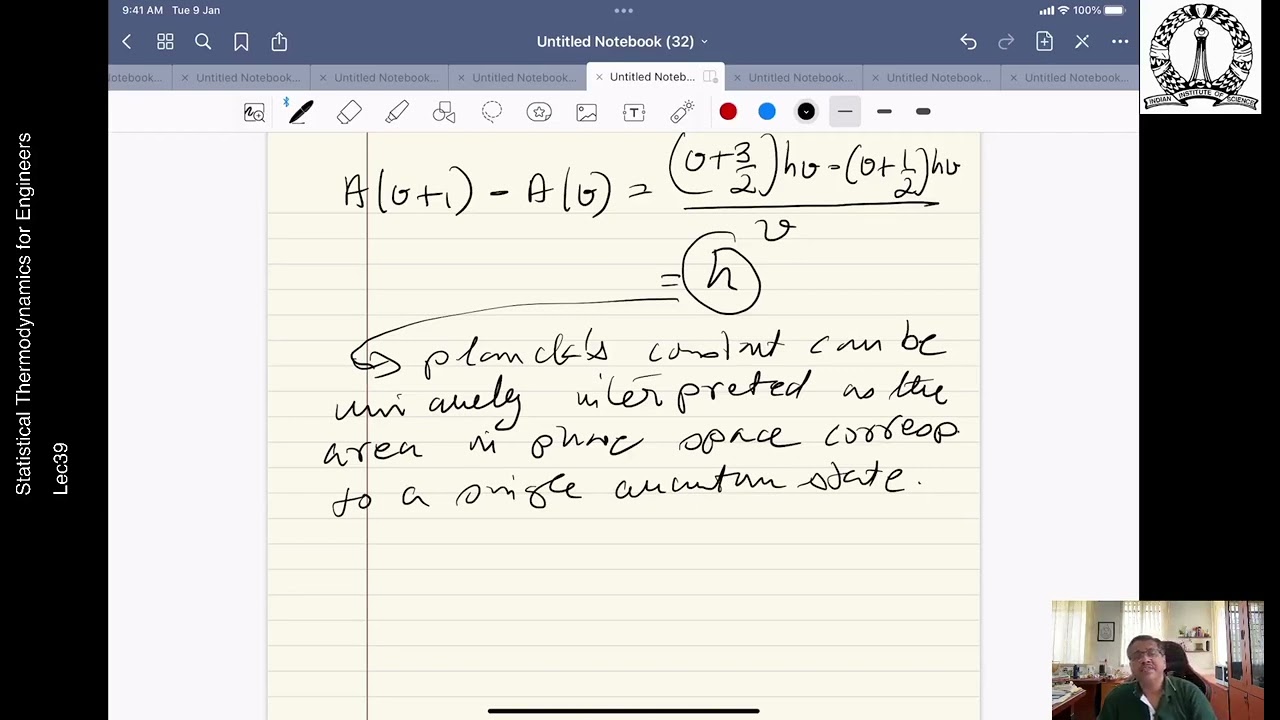 9:41 AM Tue 9 Jan
100%
Untitled Notebook (32)
otebook...
Untitled Notebook...
Untitled Notebook...
Untitled Notebook...
Untitled Noteb...
Untitled Notebook...
Untitled Notebook...
Untitled Notebook...
INDIAN INSTITUTE OF SCIENCE
Statistical Thermodynamics for Engineers
Lec39
A(v+1) - A(v) = ((v+3/2)hν - (v+1/2)hν)/ν
= h
↪ planck's constant can be
uniquely interpreted as the
area in phase space corresp
to a single quantum state.